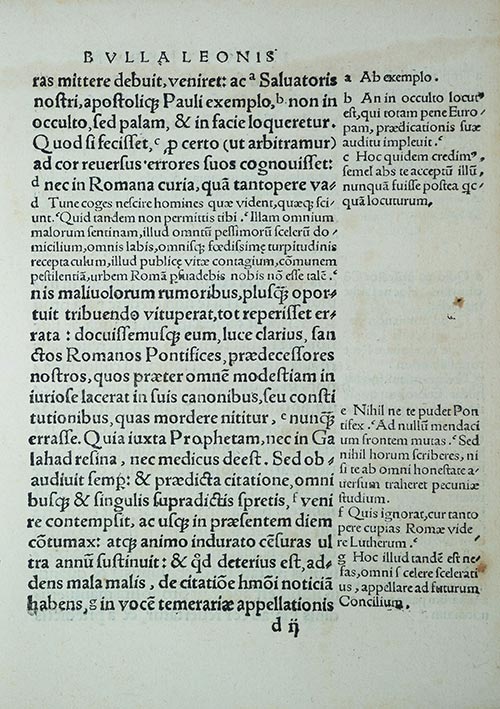 BVLLA LEONIS
ras mittere debuit, veniret: ac ᵃ Saluatoris
nostri, apostoliq3 Pauli exemplo, ᵇ non in
occulto, sed palam, & in facie loqueretur.
Quod si fecisset, ᶜ ꝓ certo (ut arbitramur)
ad cor reuersus errores suos cognouisset:
ᵈ nec in Romana curia, quā tantopere va⸗
d Tune coges nescire homines quæ vident, quæq3 sci⸗
unt. Quid tandem non permittis tibi. Illam omnium
malorum sentinam, illud omniū pessimorū scelerū do⸗
micilium, omnis labis, omnisq3 fœdissimę turpitudinis
receptaculum, illud publicę vitæ contagium, cōmunem
pestilentiā, urbem Romā ꝑsuadebis nobis nō esse talē.
nis maliuolorum rumoribus, plusq̄3 opor⸗
tuit tribuendo vituperat, tot reperisset er⸗
rata: docuissemusq3 eum, luce clarius, san
ctos Romanos Pontifices, prædecessores
nostros, quos præter omnē modestiam in
iuriose lacerat in suis canonibus, seu consti
tutionibus, quas mordere nititur, ᵉ nunq̄3
errasse. Quia iuxta Prophetam, nec in Ga
lahad resina, nec medicus deest. Sed ob⸗
audiuit semꝑ: & prædicta citatione, omni
busq3 & singulis supradictis spretis, ᶠ veni
re contempsit, ac usq3 in præsentem diem
cōtumax: atq3 animo indurato cēsuras ul
tra annū sustinuit: & qd̛ deterius est, ad⸗
dens mala malis, de citatiōe hmōi noticiā
habens, g in vocē temerariæ appellationis
d ij
a Ab exemplo.
b An in occulto locutꝰ
est, qui totam pene Euro⸗
pam, prædicationis suæ
auditu impleuit.
c Hoc quidem credimꝰ
semel abs te acceptū illū,
nunquā fuisse postea qc⸗
quā locuturum.
e Nihil ne te pudet Pon
tifex. Ad nullū mendaci
um frontem mutas. Sed
nihil horum scriberes, ni
si te ab omni honestate a⸗
uersum traheret pecuniæ
studium.
f Quis ignorat, cur tanto
pere cupias Romæ vide
re Lutherum.
g Hoc illud tandē est ne⸗
fas, omni scelere scelerati
us, appellare ad futurum
Concilium.